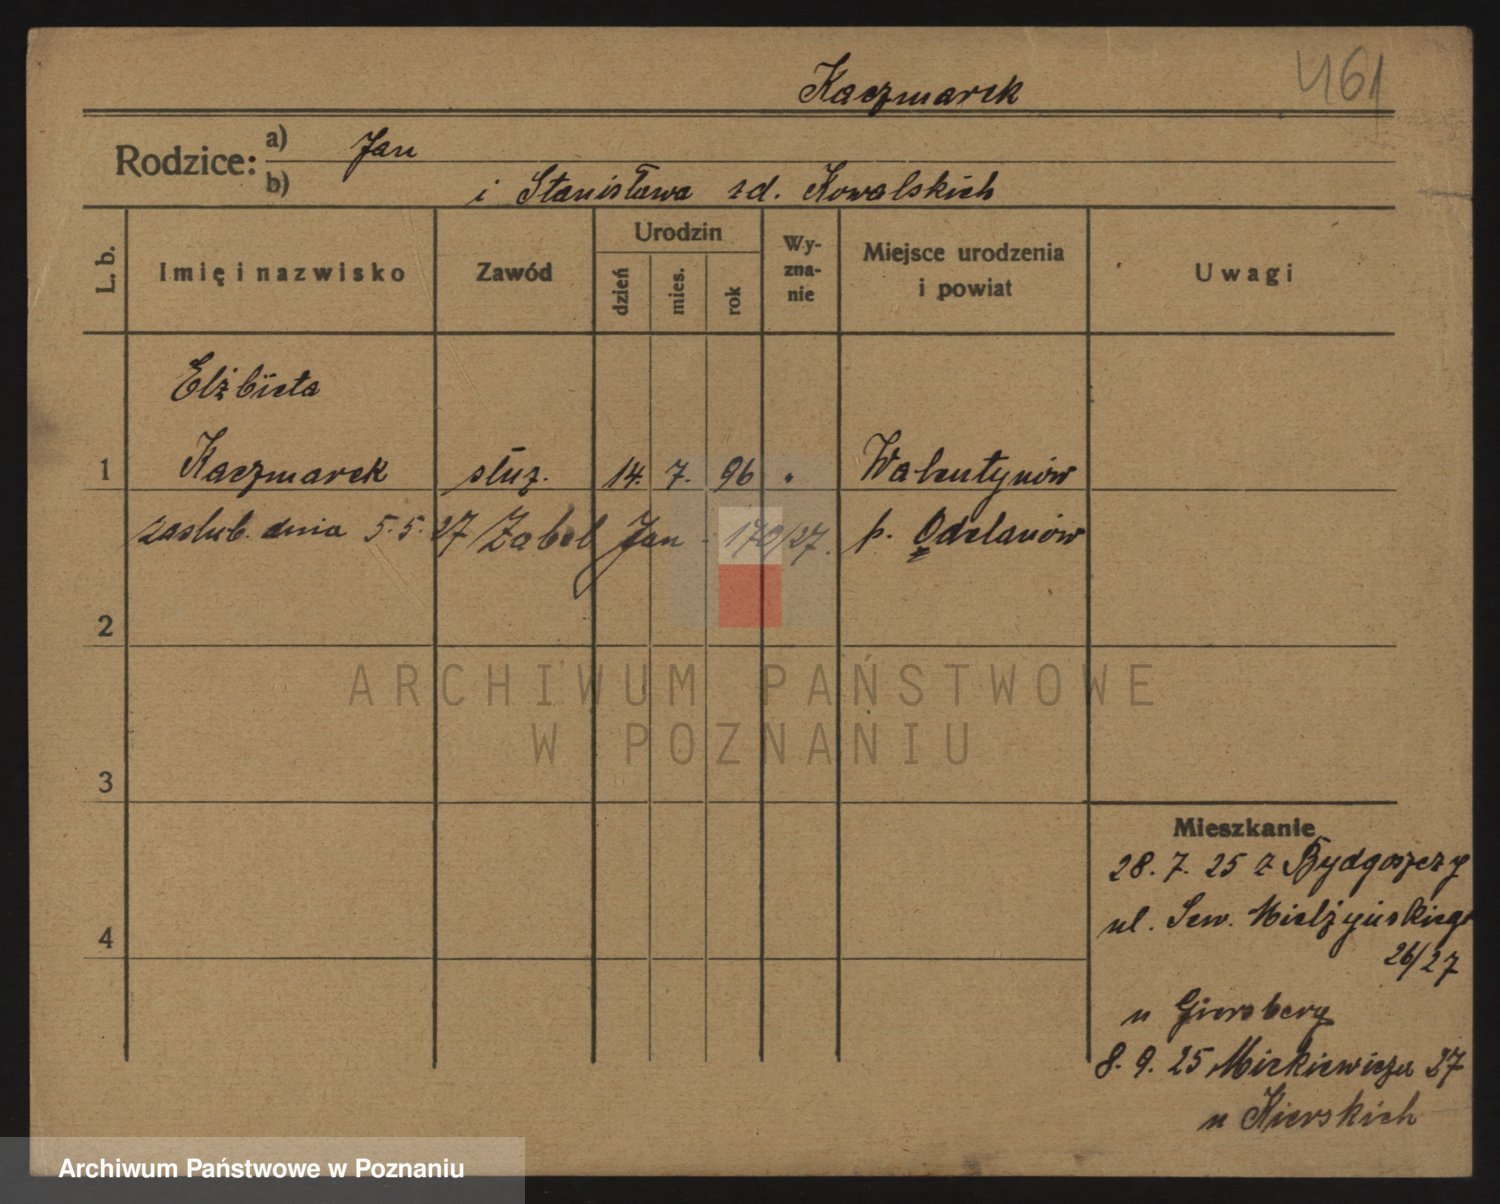 Kaczmarek
461
Rodzice:
a) Jan
b) i Stanisława zd. Kowalskich
L. b.
Imię i nazwisko
Zawód
Urodzin
dzień
mies.
rok
Wy-
zna-
nie
Miejsce urodzenia
i powiat
Uwagi
Elżbieta
1 Kaczmarek służ. 14. 7. 96 " Walentynów
zaslub. dnia 5.5.27 Zabel Jan - 170/27. p. Odolanów
2
3
4
Mieszkanie
28. 7. 25 z Bydgoszczy
ul. Sew. Mielżyńskiego
26/27
u Giersberg
8. 9. 25 Mickiewicza 27
u Kierskich
ARCHIWUM PAŃSTWOWE
W POZNANIU
Archiwum Państwowe w Poznaniu